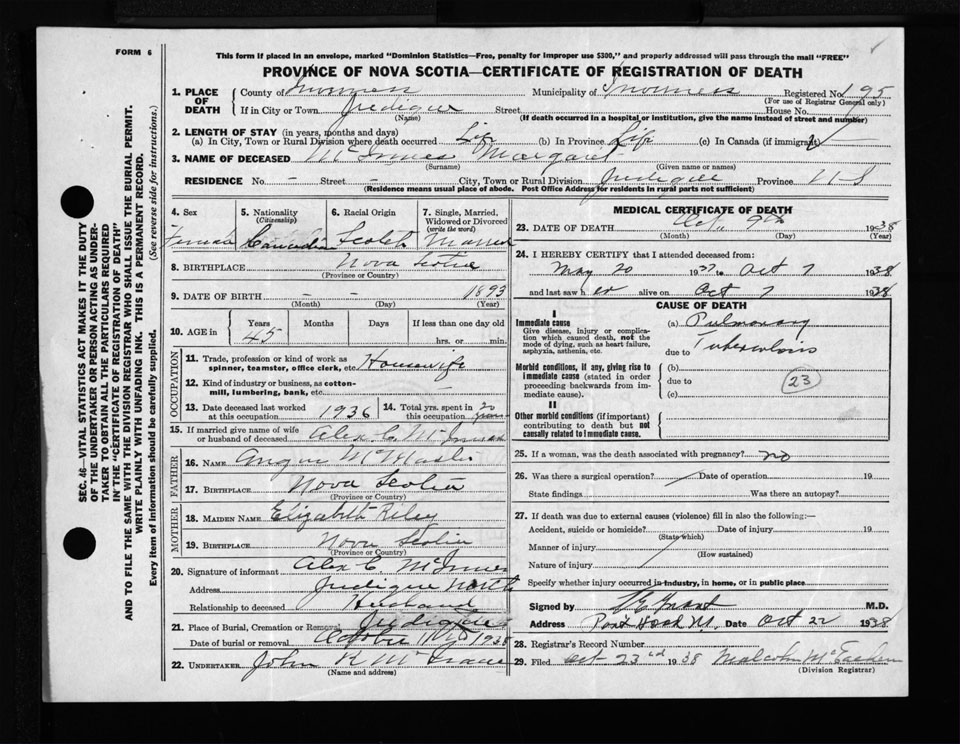 FORM 6
SEC. 46—VITAL STATISTICS ACT MAKES IT THE DUTY
OF THE UNDERTAKER OR PERSON ACTING AS UNDER-
TAKER TO OBTAIN ALL THE PARTICULARS REQUIRED
IN THE "CERTIFICATE OF REGISTRATION OF DEATH"
AND TO FILE THE SAME WITH THE DIVISION REGISTRAR WHO SHALL ISSUE THE BURIAL PERMIT.
WRITE PLAINLY WITH UNFADING INK. THIS IS A PERMANENT RECORD.
Every item of information should be carefully supplied. (See reverse side for instructions.)
This form if placed in an envelope, marked "Dominion Statistics—Free, penalty for improper use $300," and properly addressed will pass through the mail "FREE"
PROVINCE OF NOVA SCOTIA—CERTIFICATE OF REGISTRATION OF DEATH
1. PLACE OF DEATH County of Inverness Municipality of Inverness Registered No. 195
(For use of Registrar General only)
If in City or Town Judique Street House No.
(Name) (If death occurred in a hospital or institution, give the name instead of street and number)
2. LENGTH OF STAY (in years, months and days)
(a) In City, Town or Rural Division where death occurred Life (b) In Province Life (c) In Canada (if immigrant)
3. NAME OF DECEASED McInnes Margaret
(Surname) (Given name or names)
RESIDENCE No. - Street - City, Town or Rural Division Judique Province NS
(Residence means usual place of abode. Post Office Address for residents in rural parts not sufficient)
4. Sex 5. Nationality (Citizenship) 6. Racial Origin 7. Single, Married, Widowed or Divorced (write the word)
Female Canadian Scotch Married
8. BIRTHPLACE Nova Scotia
(Province or Country)
9. DATE OF BIRTH - - 1893
(Month) (Day) (Year)
10. AGE in Years Months Days If less than one day old
45 hrs. or min.
OCCUPATION
11. Trade, profession or kind of work as spinner, teamster, office clerk, etc. Housewife
12. Kind of industry or business, as cotton-mill, lumbering, bank, etc. —
13. Date deceased last worked at this occupation 1936 14. Total yrs. spent in this occupation 20 years
15. If married give name of wife or husband of deceased Alex C. McInnes
FATHER
16. NAME Angus McMaster
17. BIRTHPLACE Nova Scotia
(Province or Country)
MOTHER
18. MAIDEN NAME Elizabeth Riley
19. BIRTHPLACE Nova Scotia
(Province or Country)
20. Signature of informant Alex C. McInnes
Address Judique North
Relationship to deceased Husband
21. Place of Burial, Cremation or Removal Judique
Date of burial or removal October 1938
22. UNDERTAKER John R
(Name and address)
MEDICAL CERTIFICATE OF DEATH
23. DATE OF DEATH Oct. 9th 1938
(Month) (Day) (Year)
24. I HEREBY CERTIFY that I attended deceased from:
May 20 1937 to Oct 7 1938
and last saw her alive on Oct 7 1938
CAUSE OF DEATH
I
Immediate cause
Give disease, injury or complication which caused death, not the mode of dying, such as heart failure, asphyxia, asthenia, etc.
(a) Pulmonary
due to Tuberculosis
Morbid conditions, if any, giving rise to immediate cause (stated in order proceeding backwards from immediate cause).
(b)
due to 23
(c)
II
Other morbid conditions (if important) contributing to death but not causally related to immediate cause.
25. If a woman, was the death associated with pregnancy? no
26. Was there a surgical operation? Date of operation 19
State findings Was there an autopsy?
27. If death was due to external causes (violence) fill in also the following:—
Accident, suicide or homicide? Date of injury 19
(State which)
Manner of injury
(How sustained)
Nature of injury
Specify whether injury occurred in industry, in home, or in public place
Signed by Grant M.D.
Address Port Hood Date Oct 22 1938
28. Registrar's Record Number
29. Filed Oct 23rd 1938 Malcolm McEachern
(Division Registrar)